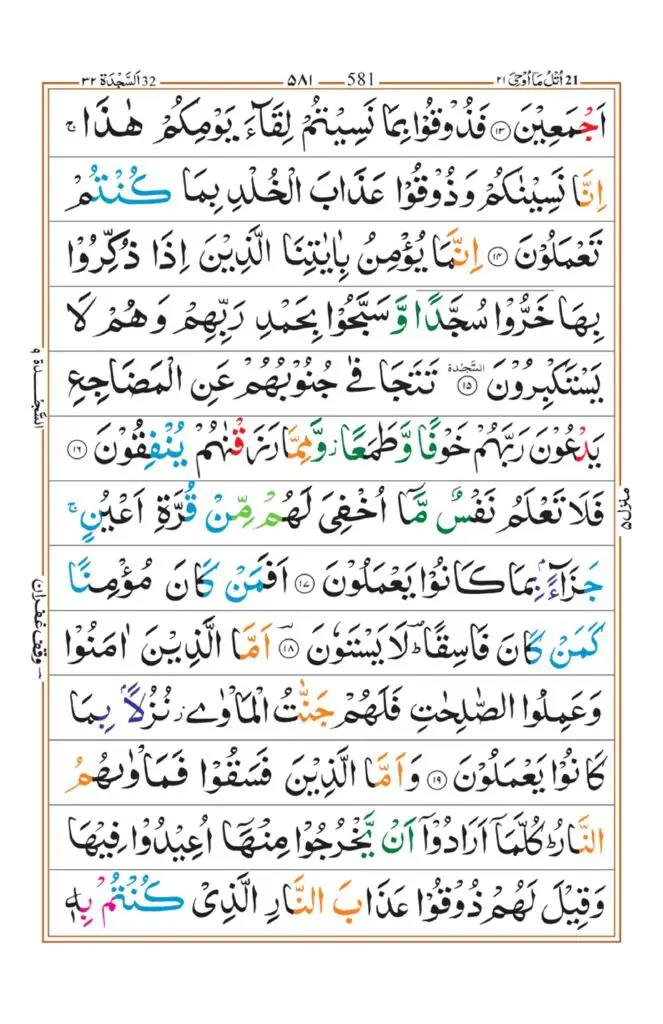 ٢١ اُتْلُ مَاۤ اُوْحِیَ 21 581 ٥٨١ 32 اَلسَّجْدَة ٣٢
اَجْمَعِیْنَ ۝۱۳ فَذُوْقُوْا بِمَا نَسِیْتُمْ لِقَآءَ یَوْمِكُمْ هٰذَا ۚ
اِنَّا نَسِیْنٰكُمْ وَ ذُوْقُوْا عَذَابَ الْخُلْدِ بِمَا كُنْتُمْ
تَعْمَلُوْنَ ۝۱۴ اِنَّمَا یُؤْمِنُ بِاٰیٰتِنَا الَّذِیْنَ اِذَا ذُكِّرُوْا
بِهَا خَرُّوْا سُجَّدًا وَّ سَبَّحُوْا بِحَمْدِ رَبِّهِمْ وَ هُمْ لَا
یَسْتَكْبِرُوْنَ ۝۱۵ السَّجْدَة تَتَجَافٰی جُنُوْبُهُمْ عَنِ الْمَضَاجِعِ
یَدْعُوْنَ رَبَّهُمْ خَوْفًا وَّ طَمَعًا ؗ وَّ مِمَّا رَزَقْنٰهُمْ یُنْفِقُوْنَ ۝۱۶
فَلَا تَعْلَمُ نَفْسٌ مَّاۤ اُخْفِیَ لَهُمْ مِّنْ قُرَّةِ اَعْیُنٍ ۚ
جَزَآءًۢ بِمَا كَانُوْا یَعْمَلُوْنَ ۝۱۷ اَفَمَنْ كَانَ مُؤْمِنًا
كَمَنْ كَانَ فَاسِقًا ؕ لَا یَسْتَوٗنَ ۝۱۸ اَمَّا الَّذِیْنَ اٰمَنُوْا
وَ عَمِلُوا الصّٰلِحٰتِ فَلَهُمْ جَنّٰتُ الْمَاْوٰی ؗ نُزُلًۢا بِمَا
كَانُوْا یَعْمَلُوْنَ ۝۱۹ وَ اَمَّا الَّذِیْنَ فَسَقُوْا فَمَاْوٰىهُمُ
النَّارُ ؕ كُلَّمَاۤ اَرَادُوْۤا اَنْ یَّخْرُجُوْا مِنْهَاۤ اُعِیْدُوْا فِیْهَا
وَ قِیْلَ لَهُمْ ذُوْقُوْا عَذَابَ النَّارِ الَّذِیْ كُنْتُمْ بِهٖ
السَّجْدَة ٩
وقف غفران
منزل ٥